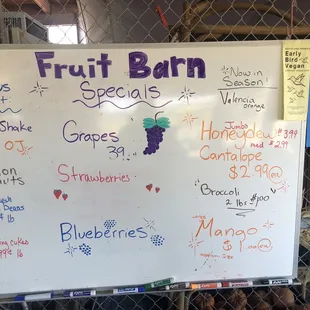 Fruit Barn
Specials
Early
Bird
Vegan
Now in
Season!
Valencia
orange
Shake
OJ
Grapes
39
Jumbo
Honeydew $3.99
med $2.99
Cantalope
$2.99 ea
Strawberries
Broccoli
2 lbs
Blueberries
Mango
$1 ea